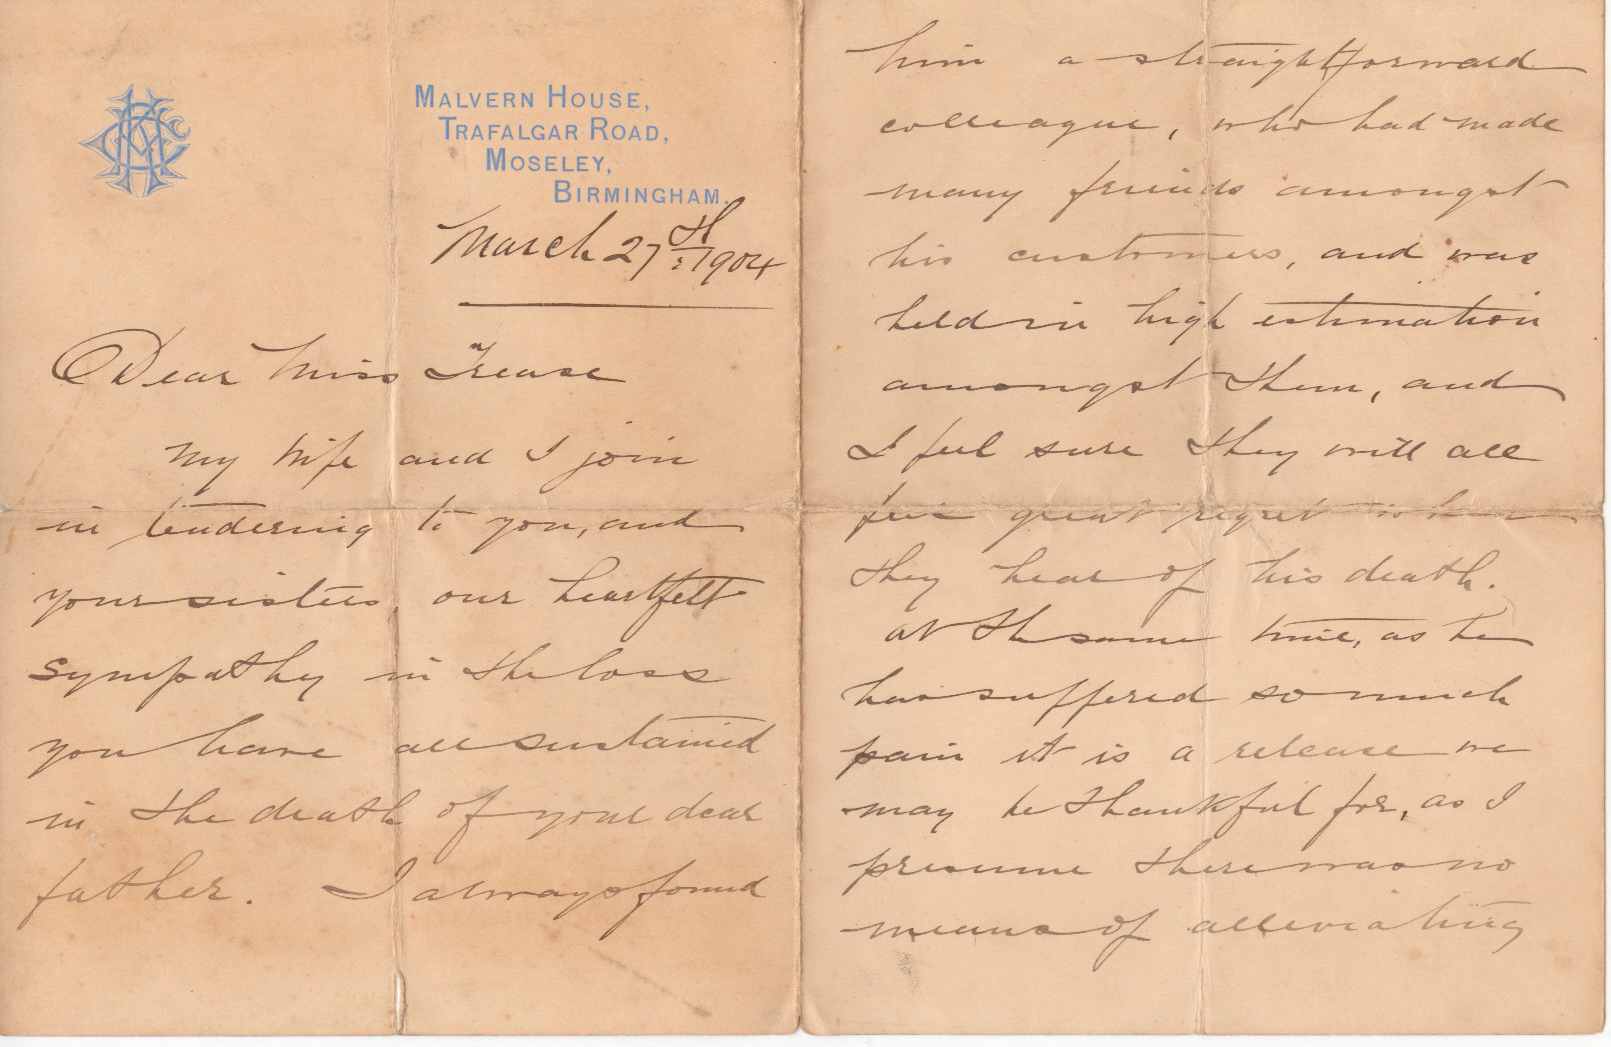 MALVERN HOUSE,
TRAFALGAR ROAD,
MOSELEY,
BIRMINGHAM.
March 27th 1904
Dear Miss Trease
My wife and I join
in tendering to you, and
your sisters, our heartfelt
sympathy in the loss
you have all sustained
in the death of your dear
father. I always found
him a straightforward
colleague, who had made
many friends amongst
his customers, and was
held in high estimation
amongst them, and
I feel sure they will all
feel great regret when
they hear of his death.
at the same time, as he
has suffered so much
pain it is a release we
may be thankful for, as I
presume there was no
means of alleviating